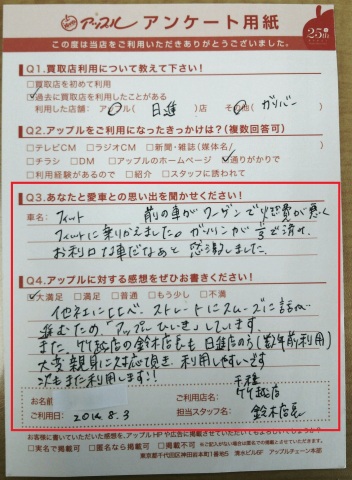 アップル アンケート用紙
25th
この度は当店をご利用いただきありがとうございました。
Q1.買取店利用について教えて下さい!
□買取店を初めて利用
☑過去に買取店を利用したことがある
利用した店舗:アップル( 日進 )店 その他( ガリバー )
Q2.アップルをご利用になったきっかけは?(複数回答可)
□テレビCM □ラジオCM □新聞・雑誌(媒体名/ )
□チラシ □DM □アップルのホームページ ☑通りがかりで
□利用経験があるので □紹介 □スタッフに誘われて
Q3.あなたと愛車との思い出を聞かせください!
車名: フィット 前の車がワーゲンで燃費が悪く
フィットに乗りかえました。ガソリンが1/3で済み、
お利口な車だなあと感激しました。
Q4.アップルに対する感想をぜひお書きください!
☑大満足 □満足 □普通 □もう少し □不満
他社に比べ、ストレートにスムーズに話が
進むため、「アップルひいき」しています。
また 竹越店の鈴木店長も 日進店の方も(数年前利用)
大変親身に対応て頂き、利用しやすいです
次もまた利用します!!
お名前
ご利用日: 2014. 8. 3
ご利用店名: 千種 竹越店
担当スタッフ名: 鈴木店長
お客様に書いていただいた感想を、アップルHPや広告に掲載させていただいてもよろしいでしょうか?
□実名で掲載可 □匿名なら掲載可 □掲載不可
東京都千代田区神田錦本町1番地5 清水ビル6F アップルチェーン本部